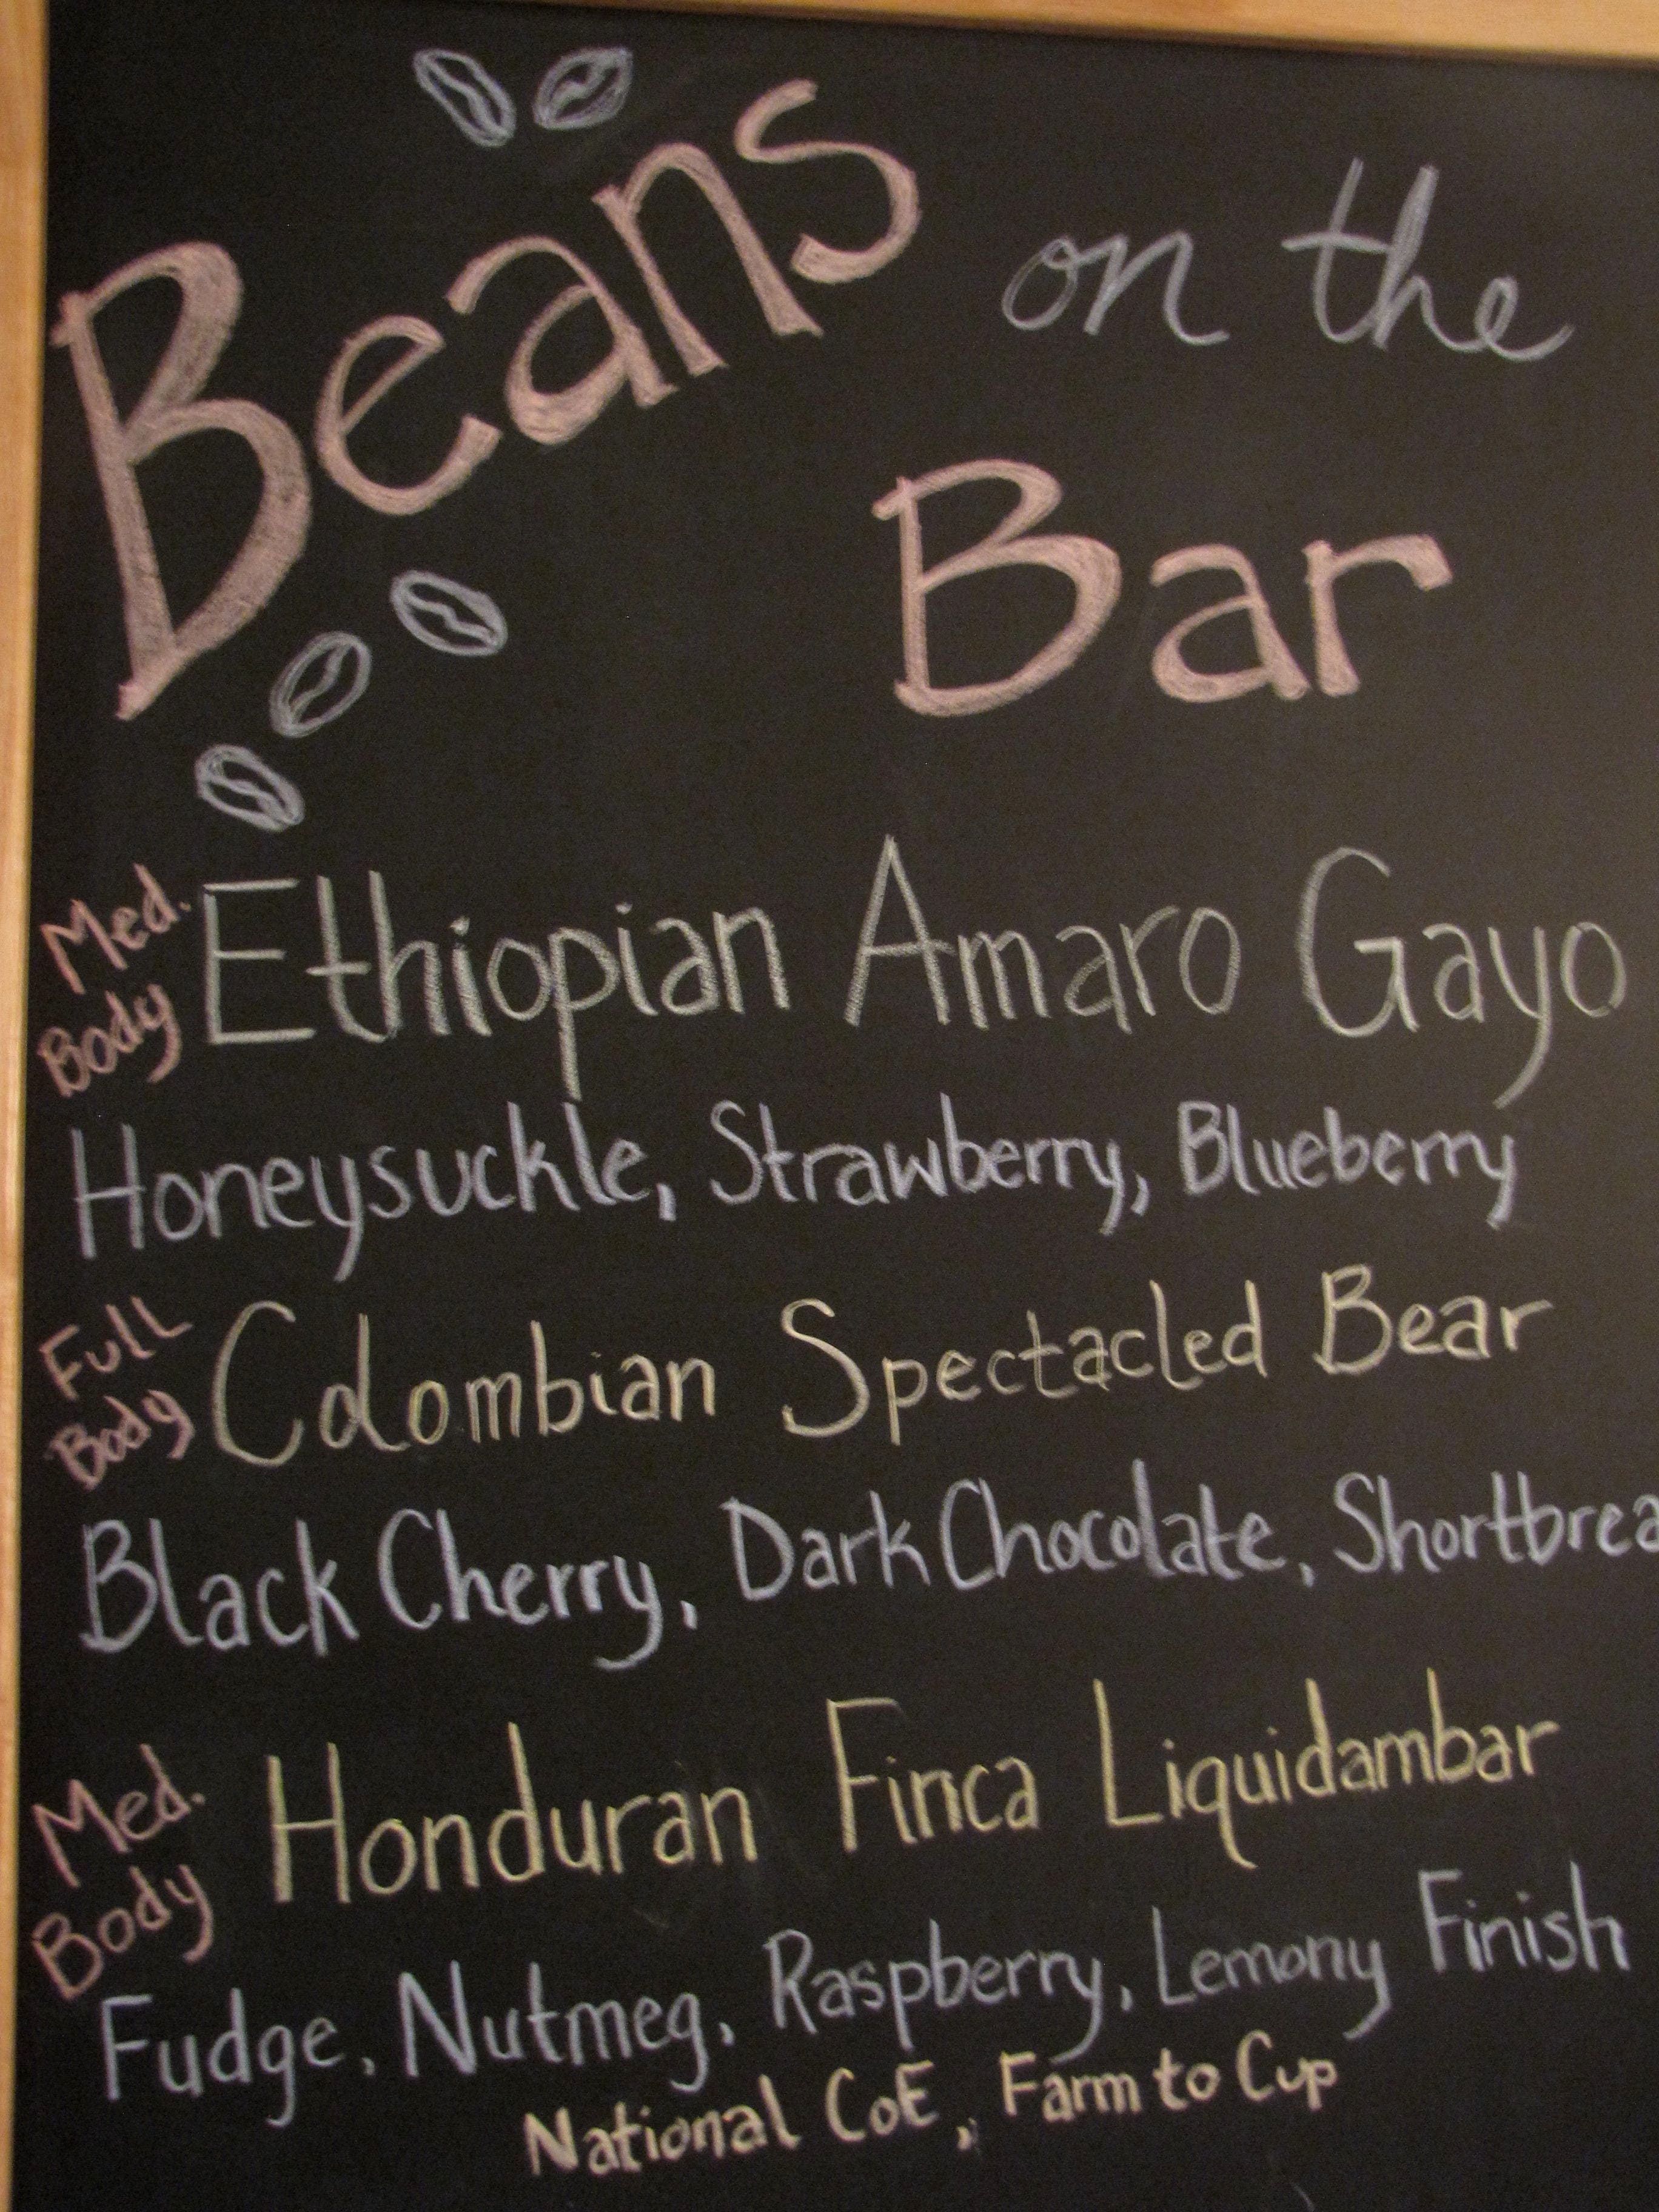 Beans on the
Bar
Med.
Body
Ethiopian Amaro Gayo
Honeysuckle, Strawberry, Blueberry
Full
Body
Colombian Spectacled Bear
Black Cherry, Dark Chocolate, Shortbrea
Med.
Body
Honduran Finca Liquidambar
Fudge, Nutmeg, Raspberry, Lemony Finish
National CoE, Farm to Cup